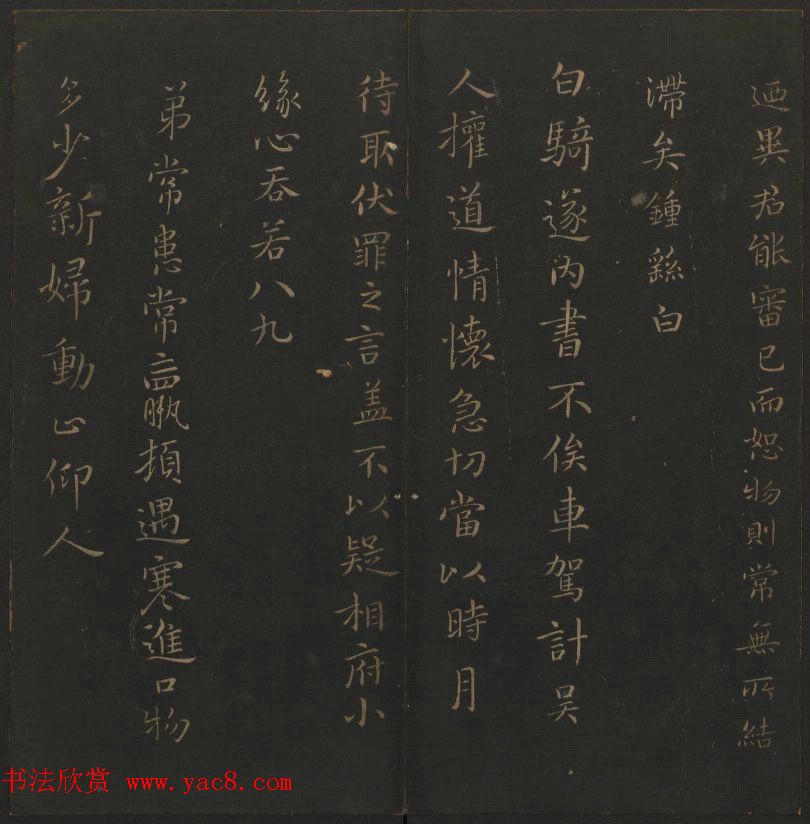 迺異君能審己而恕物則常無所結
滯矣鍾繇白
白騎遂內書不俟車駕計吴
人權道情懷急切當以時月
待取伏罪之言盖不以疑相府小
緣心吞若八九
弟常患常羸頓遇寒進口物
多少新婦動止仰人
书法欣赏 www.yac8.com